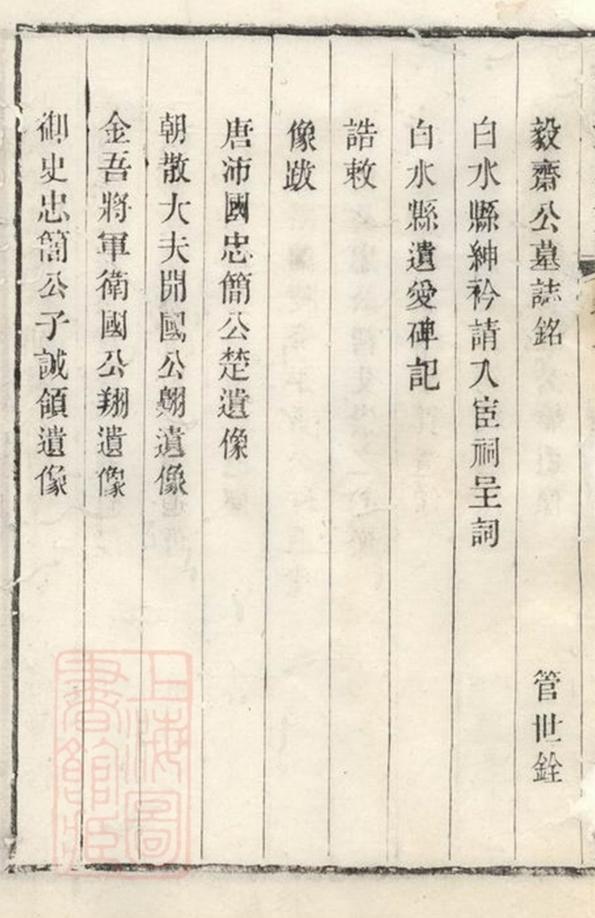 毅齋公墓誌銘 管世銓
白水縣紳衿請入宦祠呈詞
白水縣遺愛碑記
誥敕
像跋
唐沛國忠簡公楚遺像
朝散大夫開國公翺遺像
金吾將軍衛國公翔遺像
御史忠簡公子誠領遺像
上海圖書館藏